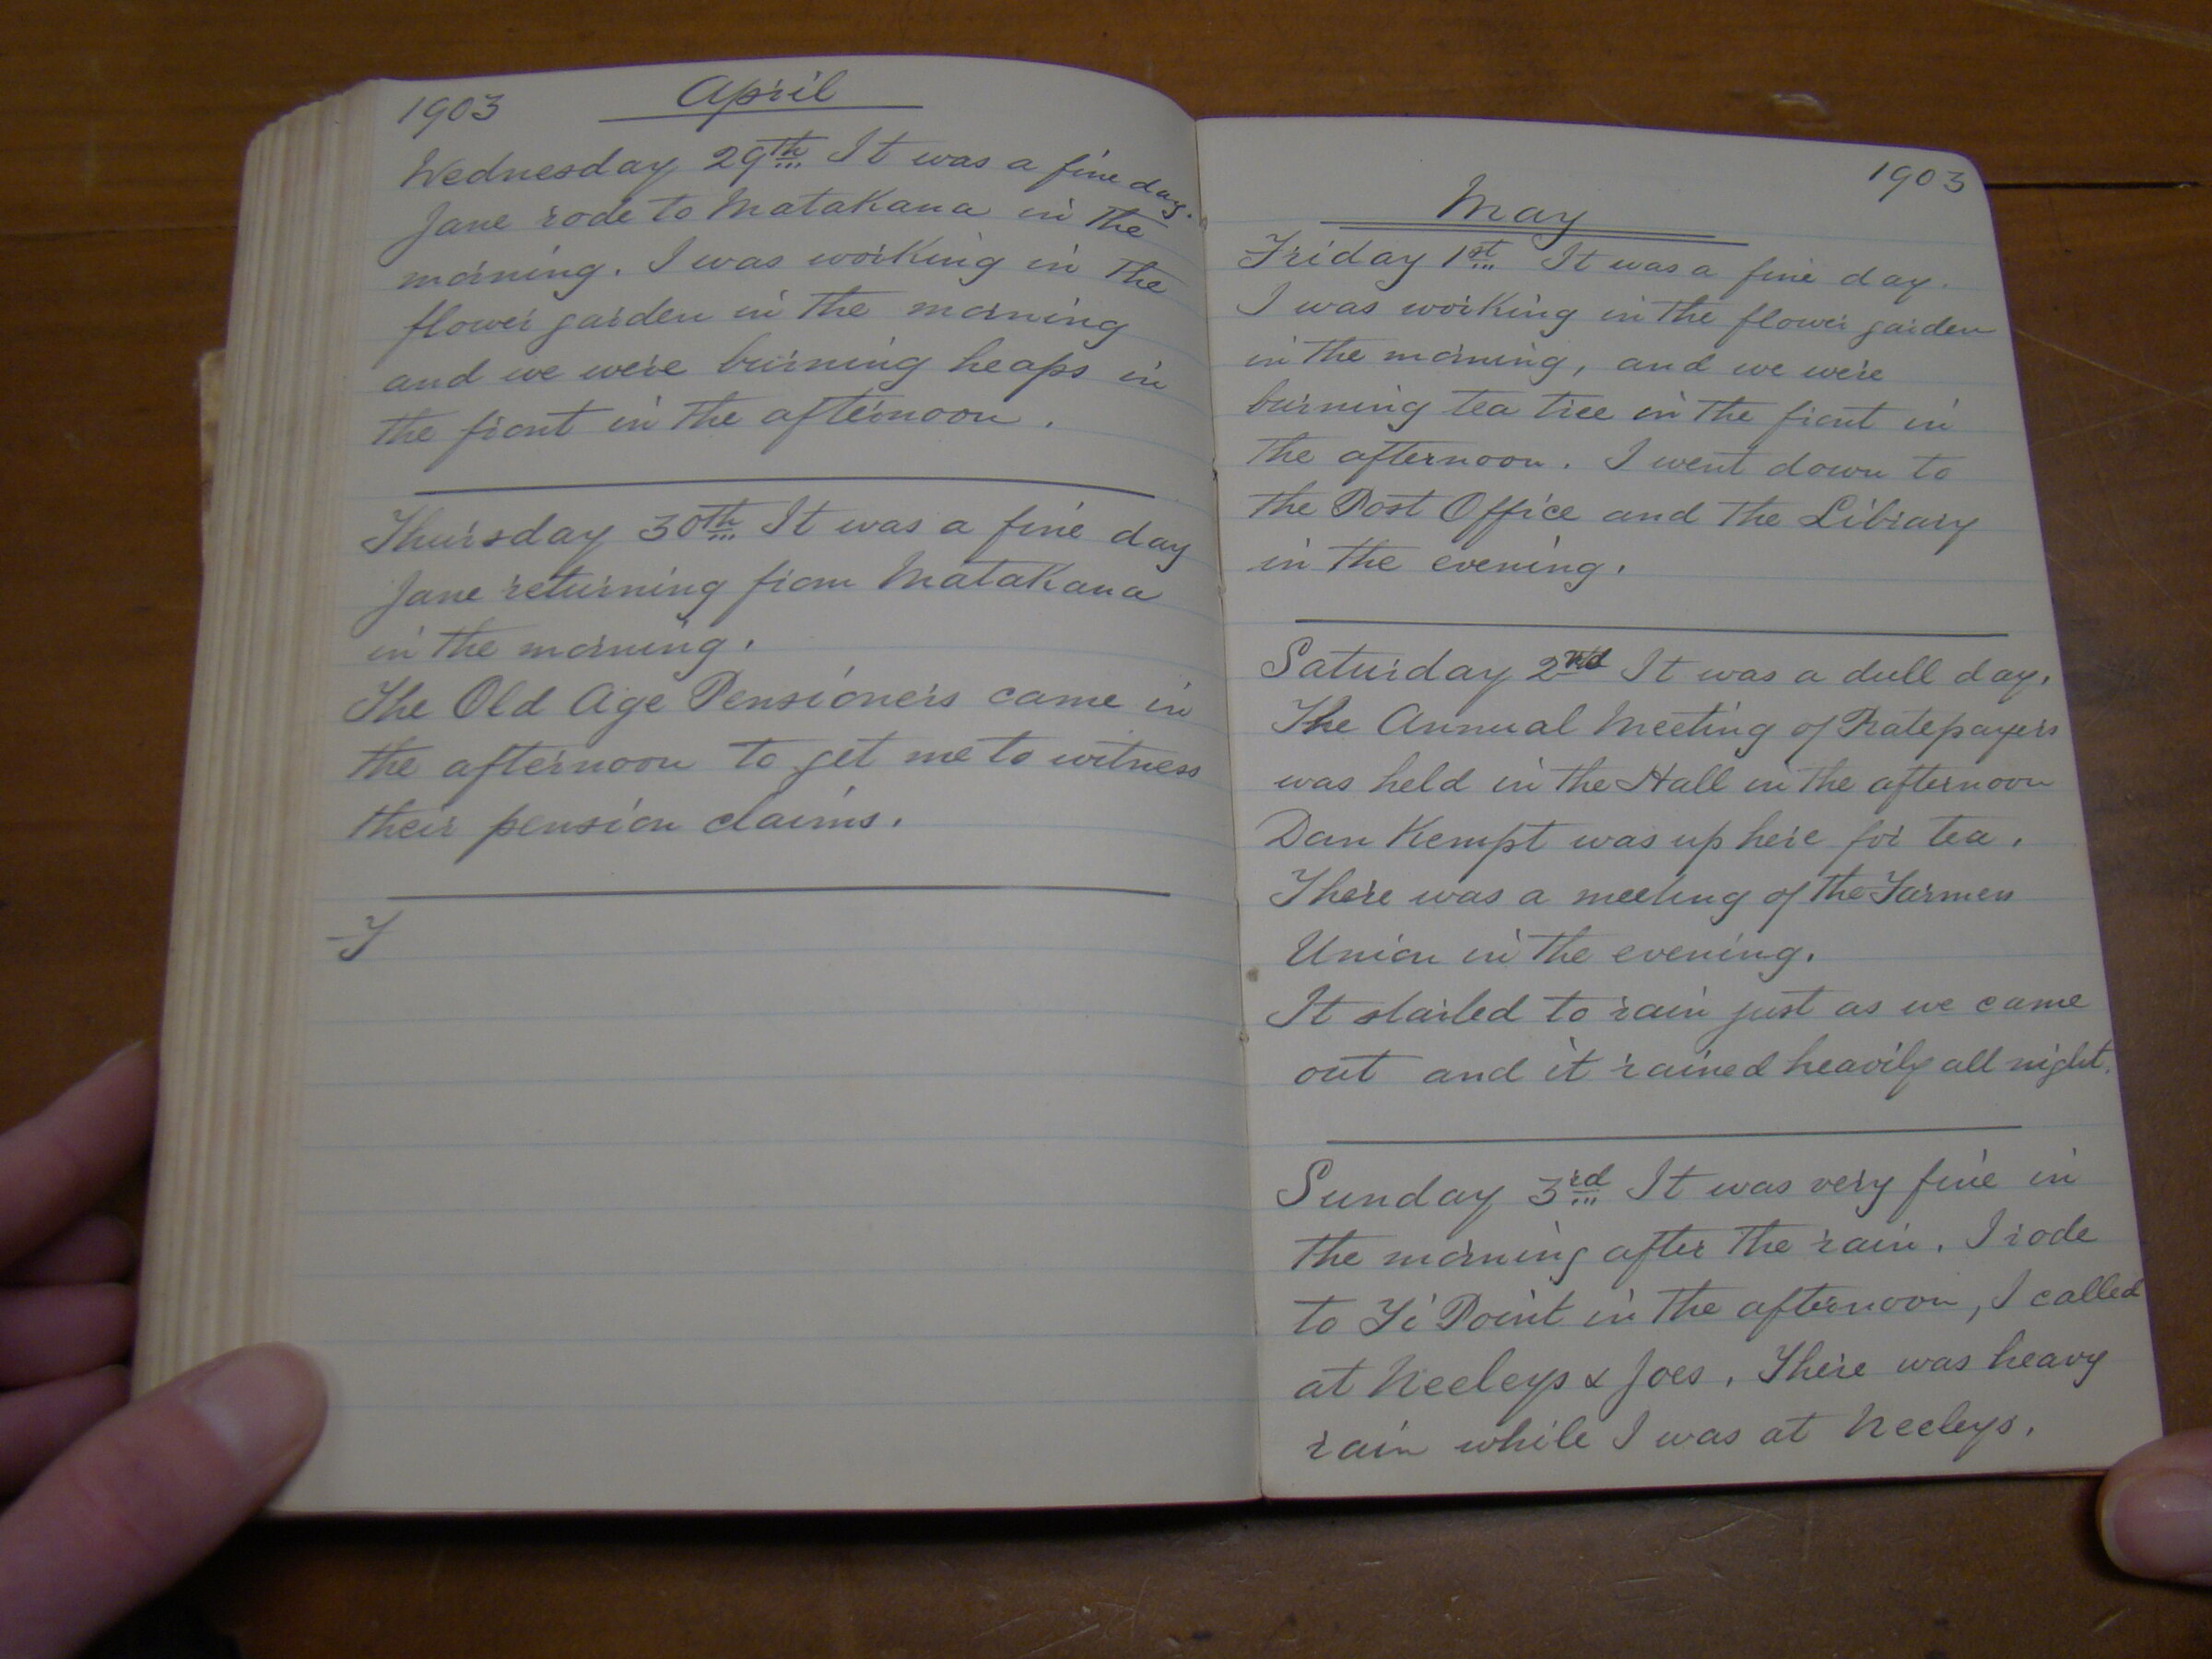 1903 April
Wednesday 29th It was a fine day.
Jane rode to Matakana in the
morning. I was working in the
flower garden in the morning
and we were burning heaps in
the front in the afternoon.
Thursday 30th It was a fine day
Jane returning from Matakana
in the morning.
The Old Age Pensioners came in
the afternoon to get me to witness
their pension claims.
F
1903
May
Friday 1st It was a fine day.
I was working in the flower garden
in the morning, and we were
burning tea tree in the front in
the afternoon. I went down to
the Post Office and the Library
in the evening.
Saturday 2nd It was a dull day.
The Annual Meeting of Ratepayers
was held in the Hall in the afternoon
Dan Kempt was up here for tea.
There was a meeting of the Farmers
Union in the evening.
It started to rain just as we came
out and it rained heavily all night.
Sunday 3rd It was very fine in
the morning after the rain. I rode
to Ti Point in the afternoon, I called
at Neeleys & Joes. There was heavy
rain while I was at Neeleys.